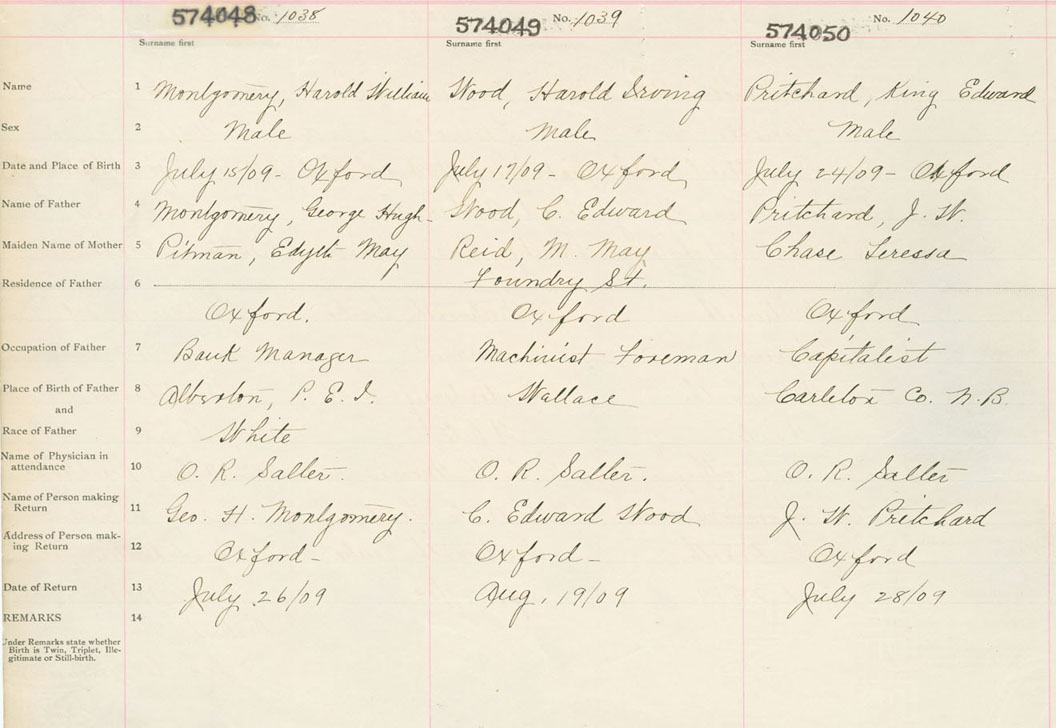 574048 No. 1038 574049 No. 1039 574050 No. 1040
Surname first Surname first Surname first
Name 1 Montgomery, Harold William Wood, Harold Irving Pritchard, King Edward
Sex 2 Male Male Male
Date and Place of Birth 3 July 15/09 - Oxford July 17/09 - Oxford July 24/09 - Oxford
Name of Father 4 Montgomery, George Hugh - Wood, C. Edward Pritchard, J. W.
Maiden Name of Mother 5 Pitman, Edyth May Reid, M. May Chase Teressa
Residence of Father 6 Foundry St.
Oxford. Oxford Oxford
Occupation of Father 7 Bank Manager Machinist Foreman Capitalist
Place of Birth of Father 8 Alberton, P. E. I. Wallace Carleton Co. N.B.
and
Race of Father 9 White
Name of Physician in
attendance 10 O. R. Salter. O. R. Salter. O. R. Salter
Name of Person making
Return 11 Geo. H. Montgomery. C. Edward Wood J. W. Pritchard
Address of Person mak-
ing Return 12 Oxford - Oxford - Oxford
Date of Return 13 July 26/09 Aug, 19/09 July 28/09
REMARKS 14
Under Remarks state whether
Birth is Twin, Triplet, Ille-
gitimate or Still-birth.